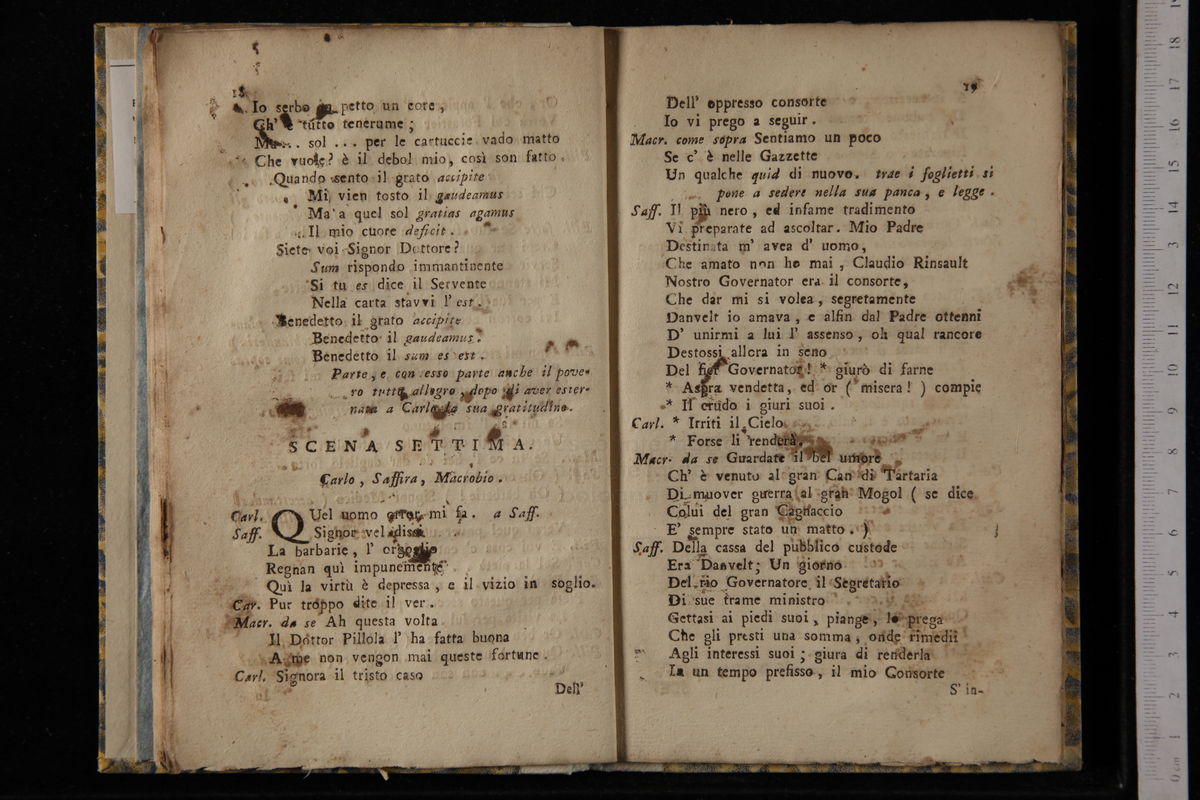 18
Io serbo in petto un core,
Ch' è tutto tenerume;
Ma... sol ... per le cartuccie vado matto
Che vuole? è il debol mio, così son fatto.
Quando sento il grato accipite
Mi vien tosto il gaudeamus
Ma a quel sol gratias agamus
Il mio cuore deficit.
Siete voi Signor Dottore?
Sum rispondo immantinente
Si tu es dice il Servente
Nella carta stavvi l' est.
Benedetto il grato accipite
Benedetto il gaudeamus.
Benedetto il sum es est.
Parte, e con esso parte anche il pove-
ro tutto allegro, dopo di aver ester-
nata a Carlo la sua gratitudine.
SCENA SETTIMA.
Carlo, Saffira, Macrobio.
Carl. QUel uomo orror mi fa. a Saff.
Saff. Signor vel dissi
La barbarie, l' orgoglio
Regnan quì impunemente
Quì la virtù è depressa, e il vizio in soglio.
Car. Pur troppo dite il ver.
Macr. da se Ah questa volta
Il Dottor Pillola l' ha fatta buona
A me non vengon mai queste fortune.
Carl. Signora il tristo caso
Dell'
19
Dell' oppresso consorte
Io vi prego a seguir.
Macr. come sopra Sentiamo un poco
Se c' è nelle Gazzette
Un qualche quid di nuovo. trae i foglietti si
pone a sedere nella sua panca, e legge.
Saff. Il più nero, ed infame tradimento
Vi preparate ad ascoltar. Mio Padre
Destinata m' avea d' uomo,
Che amato non ho mai, Claudio Rinsault
Nostro Governator era il consorte,
Che dar mi si volea, segretamente
Danvelt io amava, e alfin dal Padre ottenni
D' unirmi a lui l' assenso, oh qual rancore
Destossi allora in seno
Del fier Governator! * giurò di farne
* Aspra vendetta, ed or ( misera! ) compiè
* Il crudo i giuri suoi.
Carl. * Irriti il Cielo
* Forse li renderà.
Macr. da se Guardate il bel umore
Ch' è venuto al gran Can di Tartaria
Di muover guerra al gran Mogol ( se dice
Colui del gran Cagnaccio
E' sempre stato un matto. )
Saff. Della cassa del pubblico custode
Era Danvelt; Un giorno
Del rio Governatore il Segretario
Di sue trame ministro
Gettasi ai piedi suoi, piange, lo prega
Che gli presti una somma, onde rimedii
Agli interessi suoi; giura di renderla
In un tempo prefisso, il mio Consorte
S' in-
0 cm 1 2 3 4 5 6 7 8 9 10 11 12 13 14 15 16 17 18 19